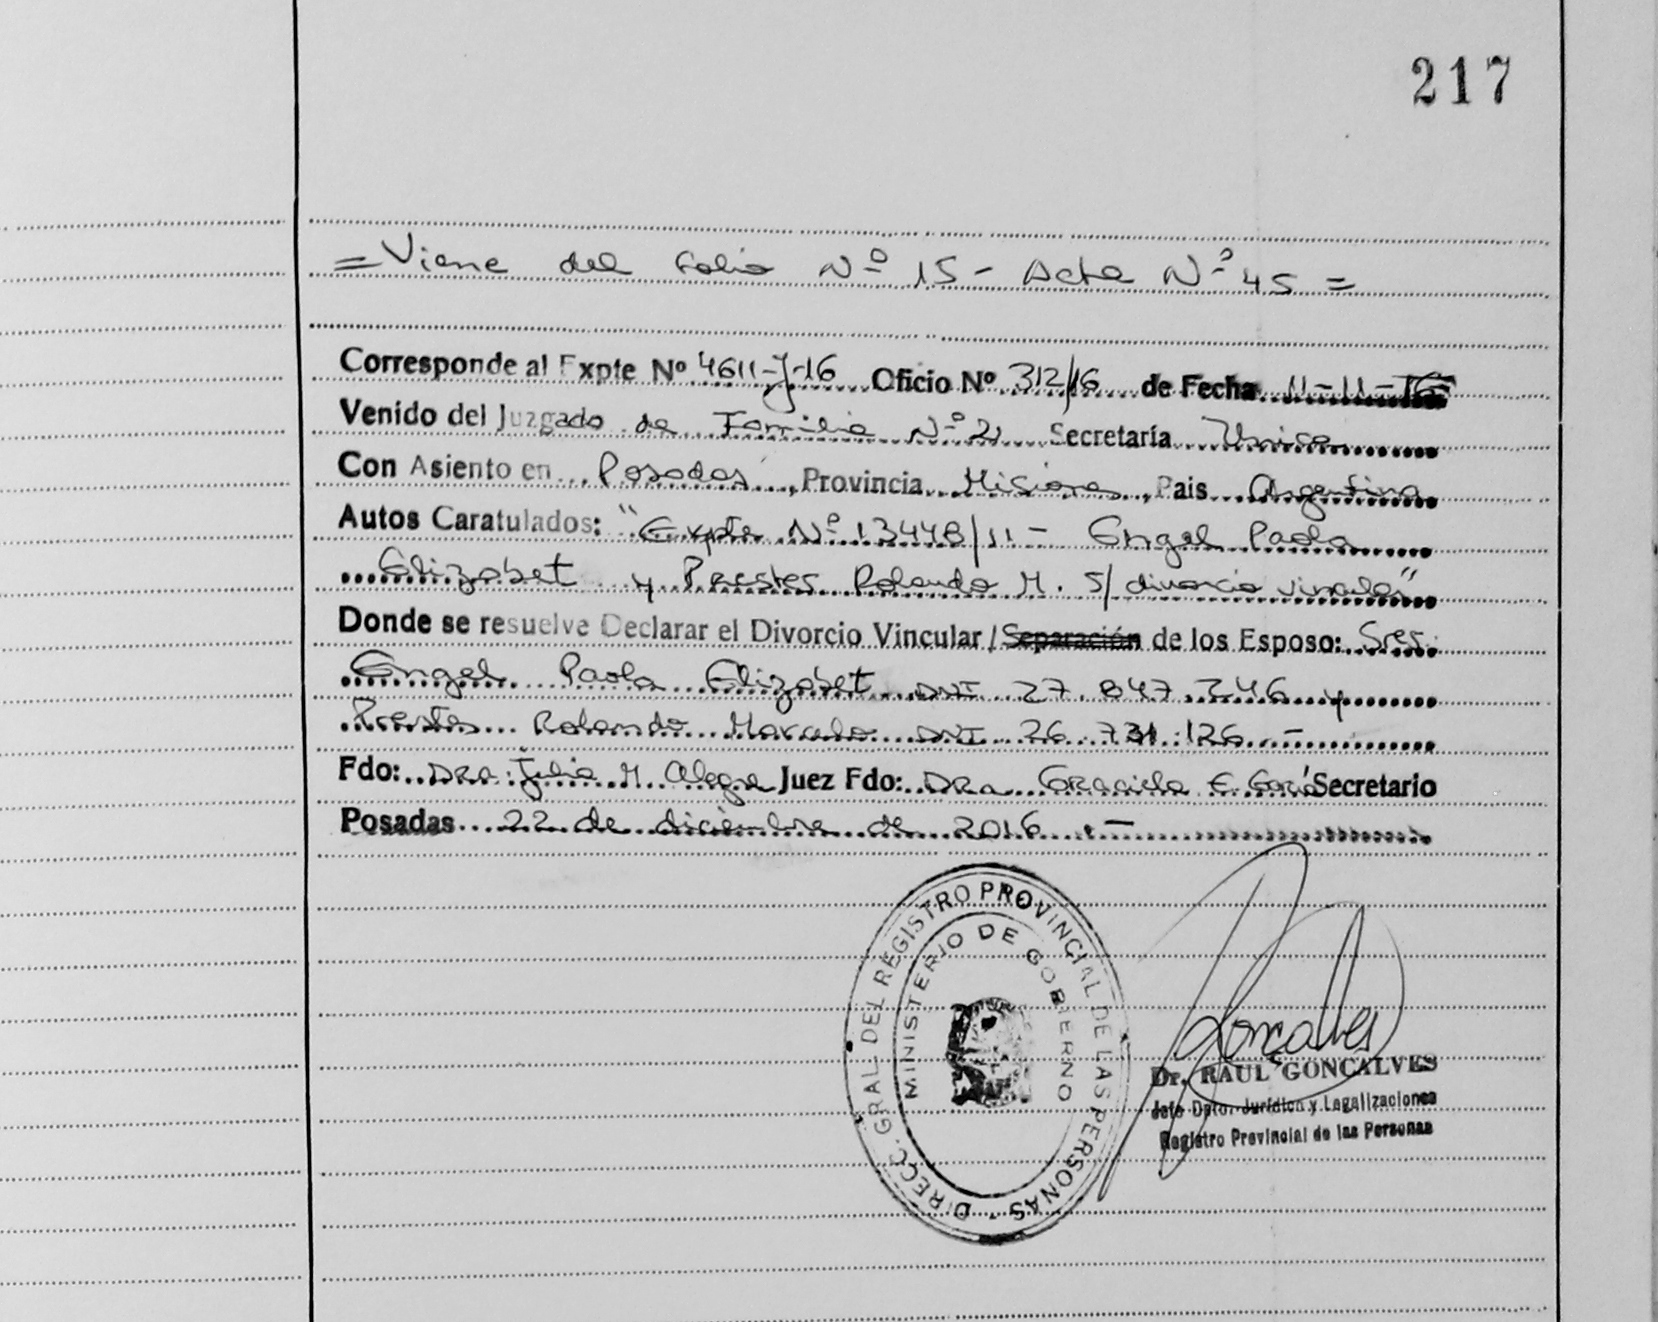 217
= Viene del folio Nº 15 - Acta Nº 45 =
Corresponde al Expte Nº 4611-J-16 Oficio Nº 312/16 de Fecha 11-11-16
Venido del Juzgado de Familia Nº 2 Secretaría Unica
Con Asiento en Posadas, Provincia Misiones, Pais Argentina
Autos Caratulados: "Expte Nº 13448/11 - Engel Paola
Elizabet y Prestes Rolando M. S/ divorcio vincular"
Donde se resuelve Declarar el Divorcio Vincular / Separación de los Esposo: Sres.
Engel Paola Elizabet DNI 27 847 346 y
Prestes Rolando Marcelo DNI 26 731 126 -
Fdo: DRA Julia M. Alegre Juez Fdo: DRA Graciela E. Secretario
Posadas 22 de diciembre de 2016 . -
DIRECC. GRAL. DEL REGISTRO PROVINCIAL DE LAS PERSONAS -
MINISTERIO DE GOBIERNO
Goncalves
Dr. RAUL GONCALVES
Jefe Dpto. Jurídico y Legalizaciones
Registro Provincial de las Personas